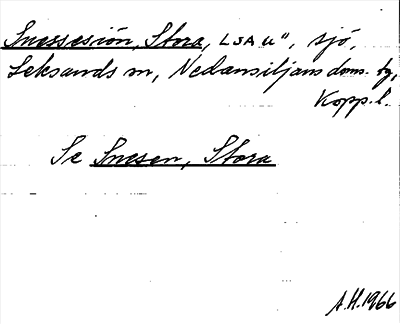 Snessesión, Stora, LSA u", sjö,
Leksands sn, Nedansiljans doms. tg,
Kopp. l.
Se Snesen, Stora
A.H. 1966